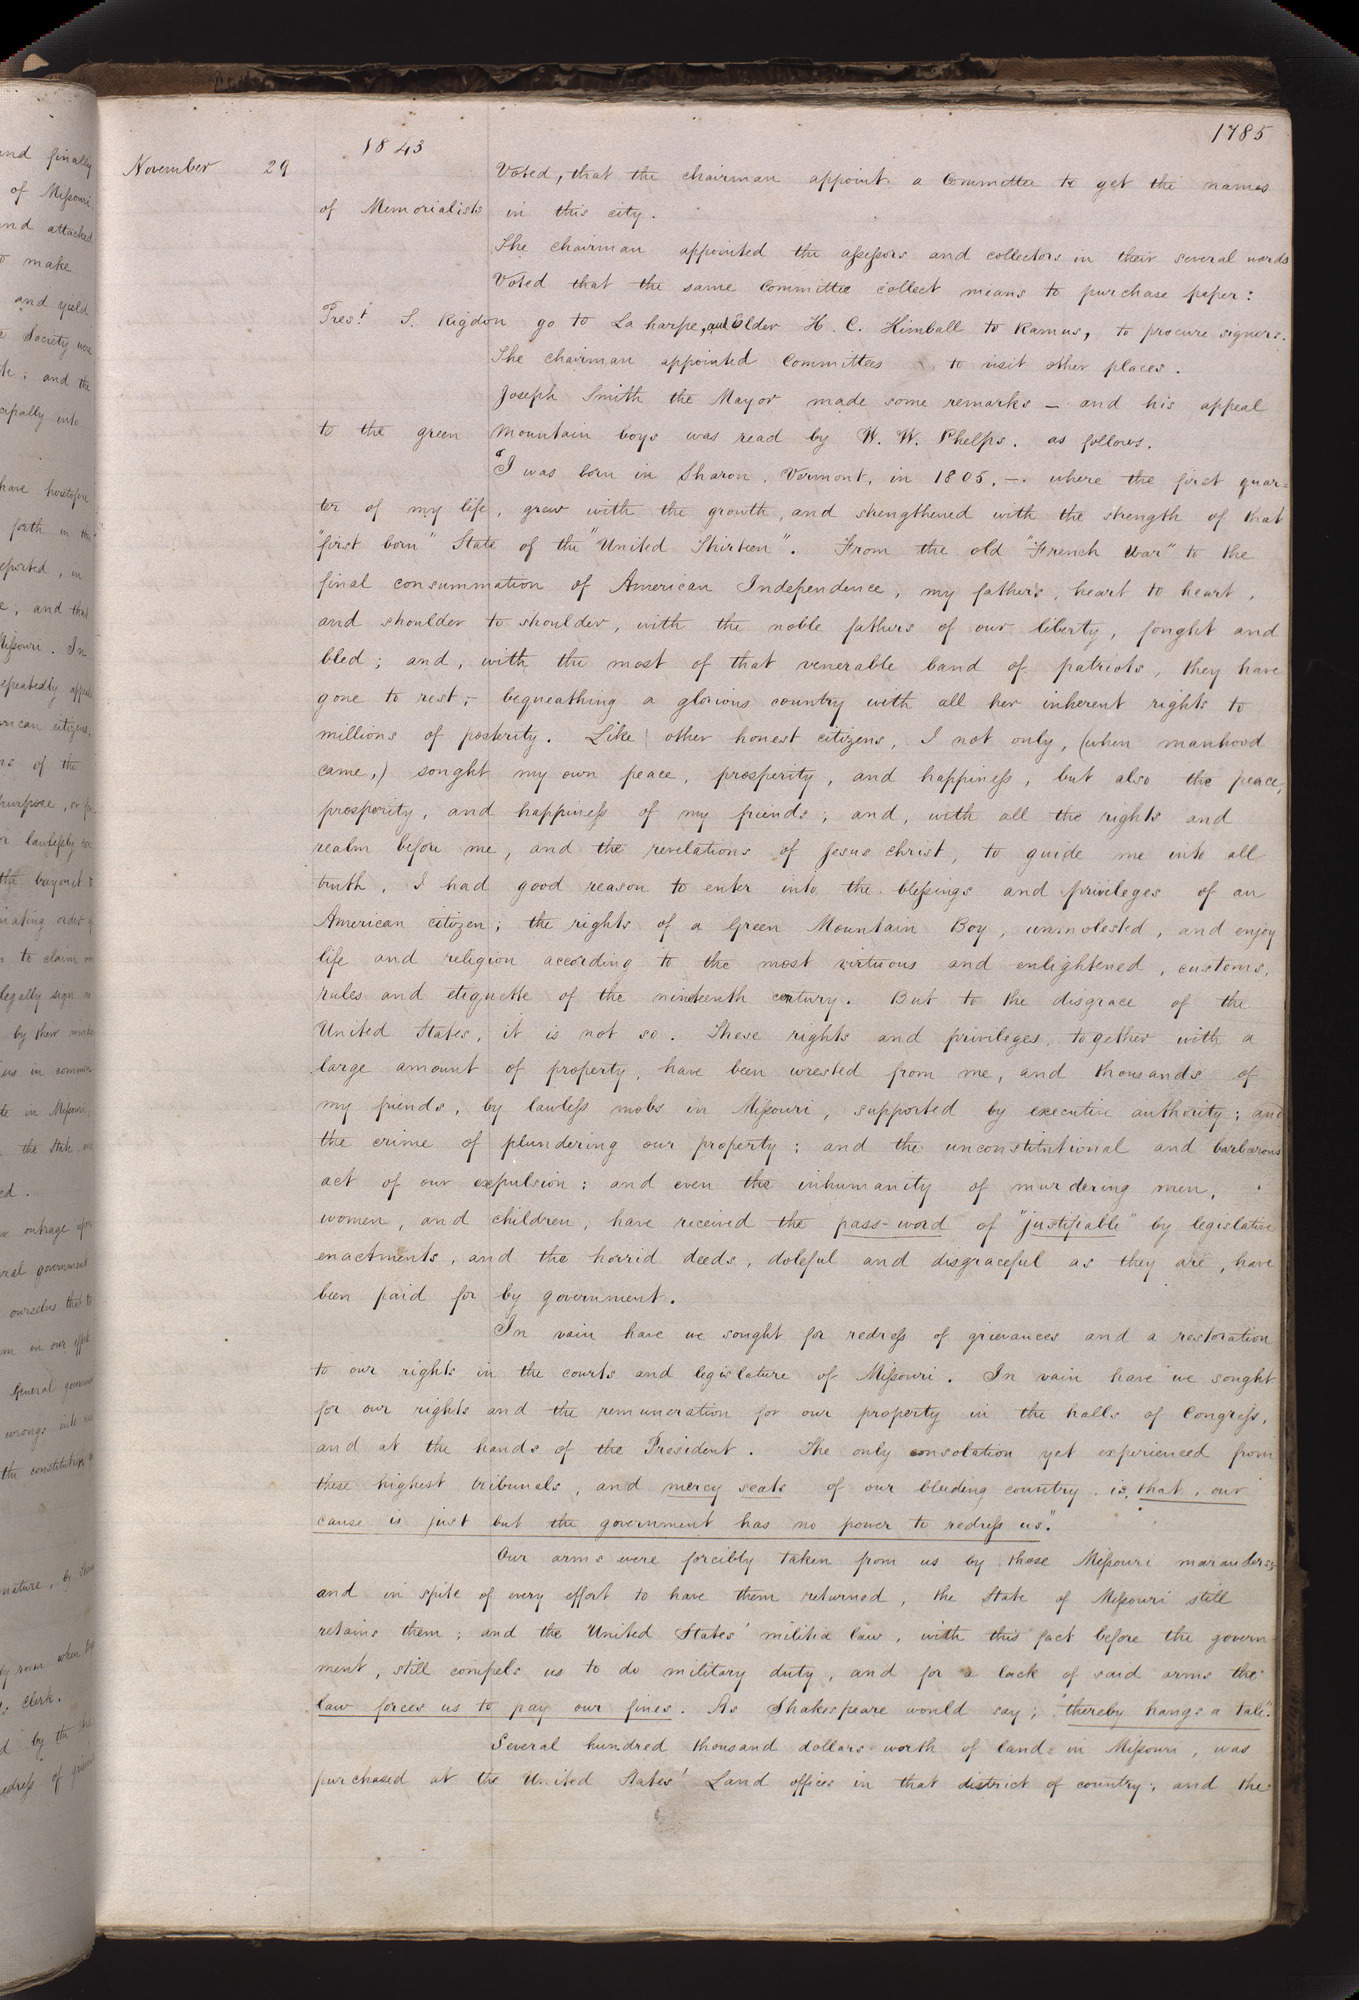 1785
1843
November 29
Voted, that the chairman appoint a Committee to get the names
of Memorialists in this city.
The chairman appointed the assessors and collectors in their several wards
Voted that the same Committee collect means to purchase paper:
Prest. S. Rigdon go to Laharpe, and Elder H. C. Kimball to Ramus, to procure signers.
The chairman appointed Committees to visit other places.
Joseph Smith the Mayor made some remarks — and his appeal
to the green mountain boys was read by W. W. Phelps. as follows.
"I was born in Sharon, Vermont, in 1805, —. where the first quar=
ter of my life, grew with the growth, and strengthened with the strength of that
"first born" State of the "United Thirteen". From the old "French War" to the
final consummation of American Independence, my fathers, heart to heart,
and shoulder to shoulder, with the noble fathers of our liberty, fought and
bled; and, with the most of that venerable band of patriots, they have
gone to rest,— bequeathing a glorious country with all her inherent rights to
millions of posterity. Like other honest citizens, I not only, (when manhood
came,) sought my own peace, prosperity, and happiness, but also the peace,
prosperity, and happiness of my friends; and, with all the rights and
realm before me, and the revelations of Jesus Christ, to guide me into all
truth, I had good reason to enter into the blessings and privileges of an
American citizen; the rights of a Green Mountain Boy, unmolested, and enjoy
life and religion according to the most virtuous and enlightened, customs,
rules and etiquette of the nineteenth century. But to the disgrace of the
United States, it is not so. These rights and privileges, together with a
large amount of property, have been wrested from me, and thousands of
my friends, by lawless mobs in Missouri, supported by executive authority; and
the crime of plundering our property; and the unconstitutional and barbarous
act of our expulsion; and even the inhumanity of murdering men,
women, and children, have received the pass-word of "justifiable" by legislative
enactments, and the horrid deeds, doleful and disgraceful as they are, have
been paid for by government.
In vain have we sought for redress of grievances and a restoration
to our rights in the courts and legislature of Missouri. In vain have we sought
for our rights and the remuneration for our property in the halls of Congress,
and at the hands of the President. The only consolation yet experienced from
these highest tribunals, and mercy seats of our bleeding country. is, that, our
cause is just but the government has no power to redress us."
Our arms were forcibly taken from us by those Missouri marauders;
and in spite of every effort to have them returned, the State of Missouri still
retains them; and the United States' militia law, with this fact before the govern
ment, still compels us to do military duty, and for a lack of said arms the
law forces us to pay our fines. As Shakespeare would say; "thereby hangs a tale".
Several hundred thousand dollars worth of land in Missouri, was
purchased at the United States' Land offices in that district of country; and the